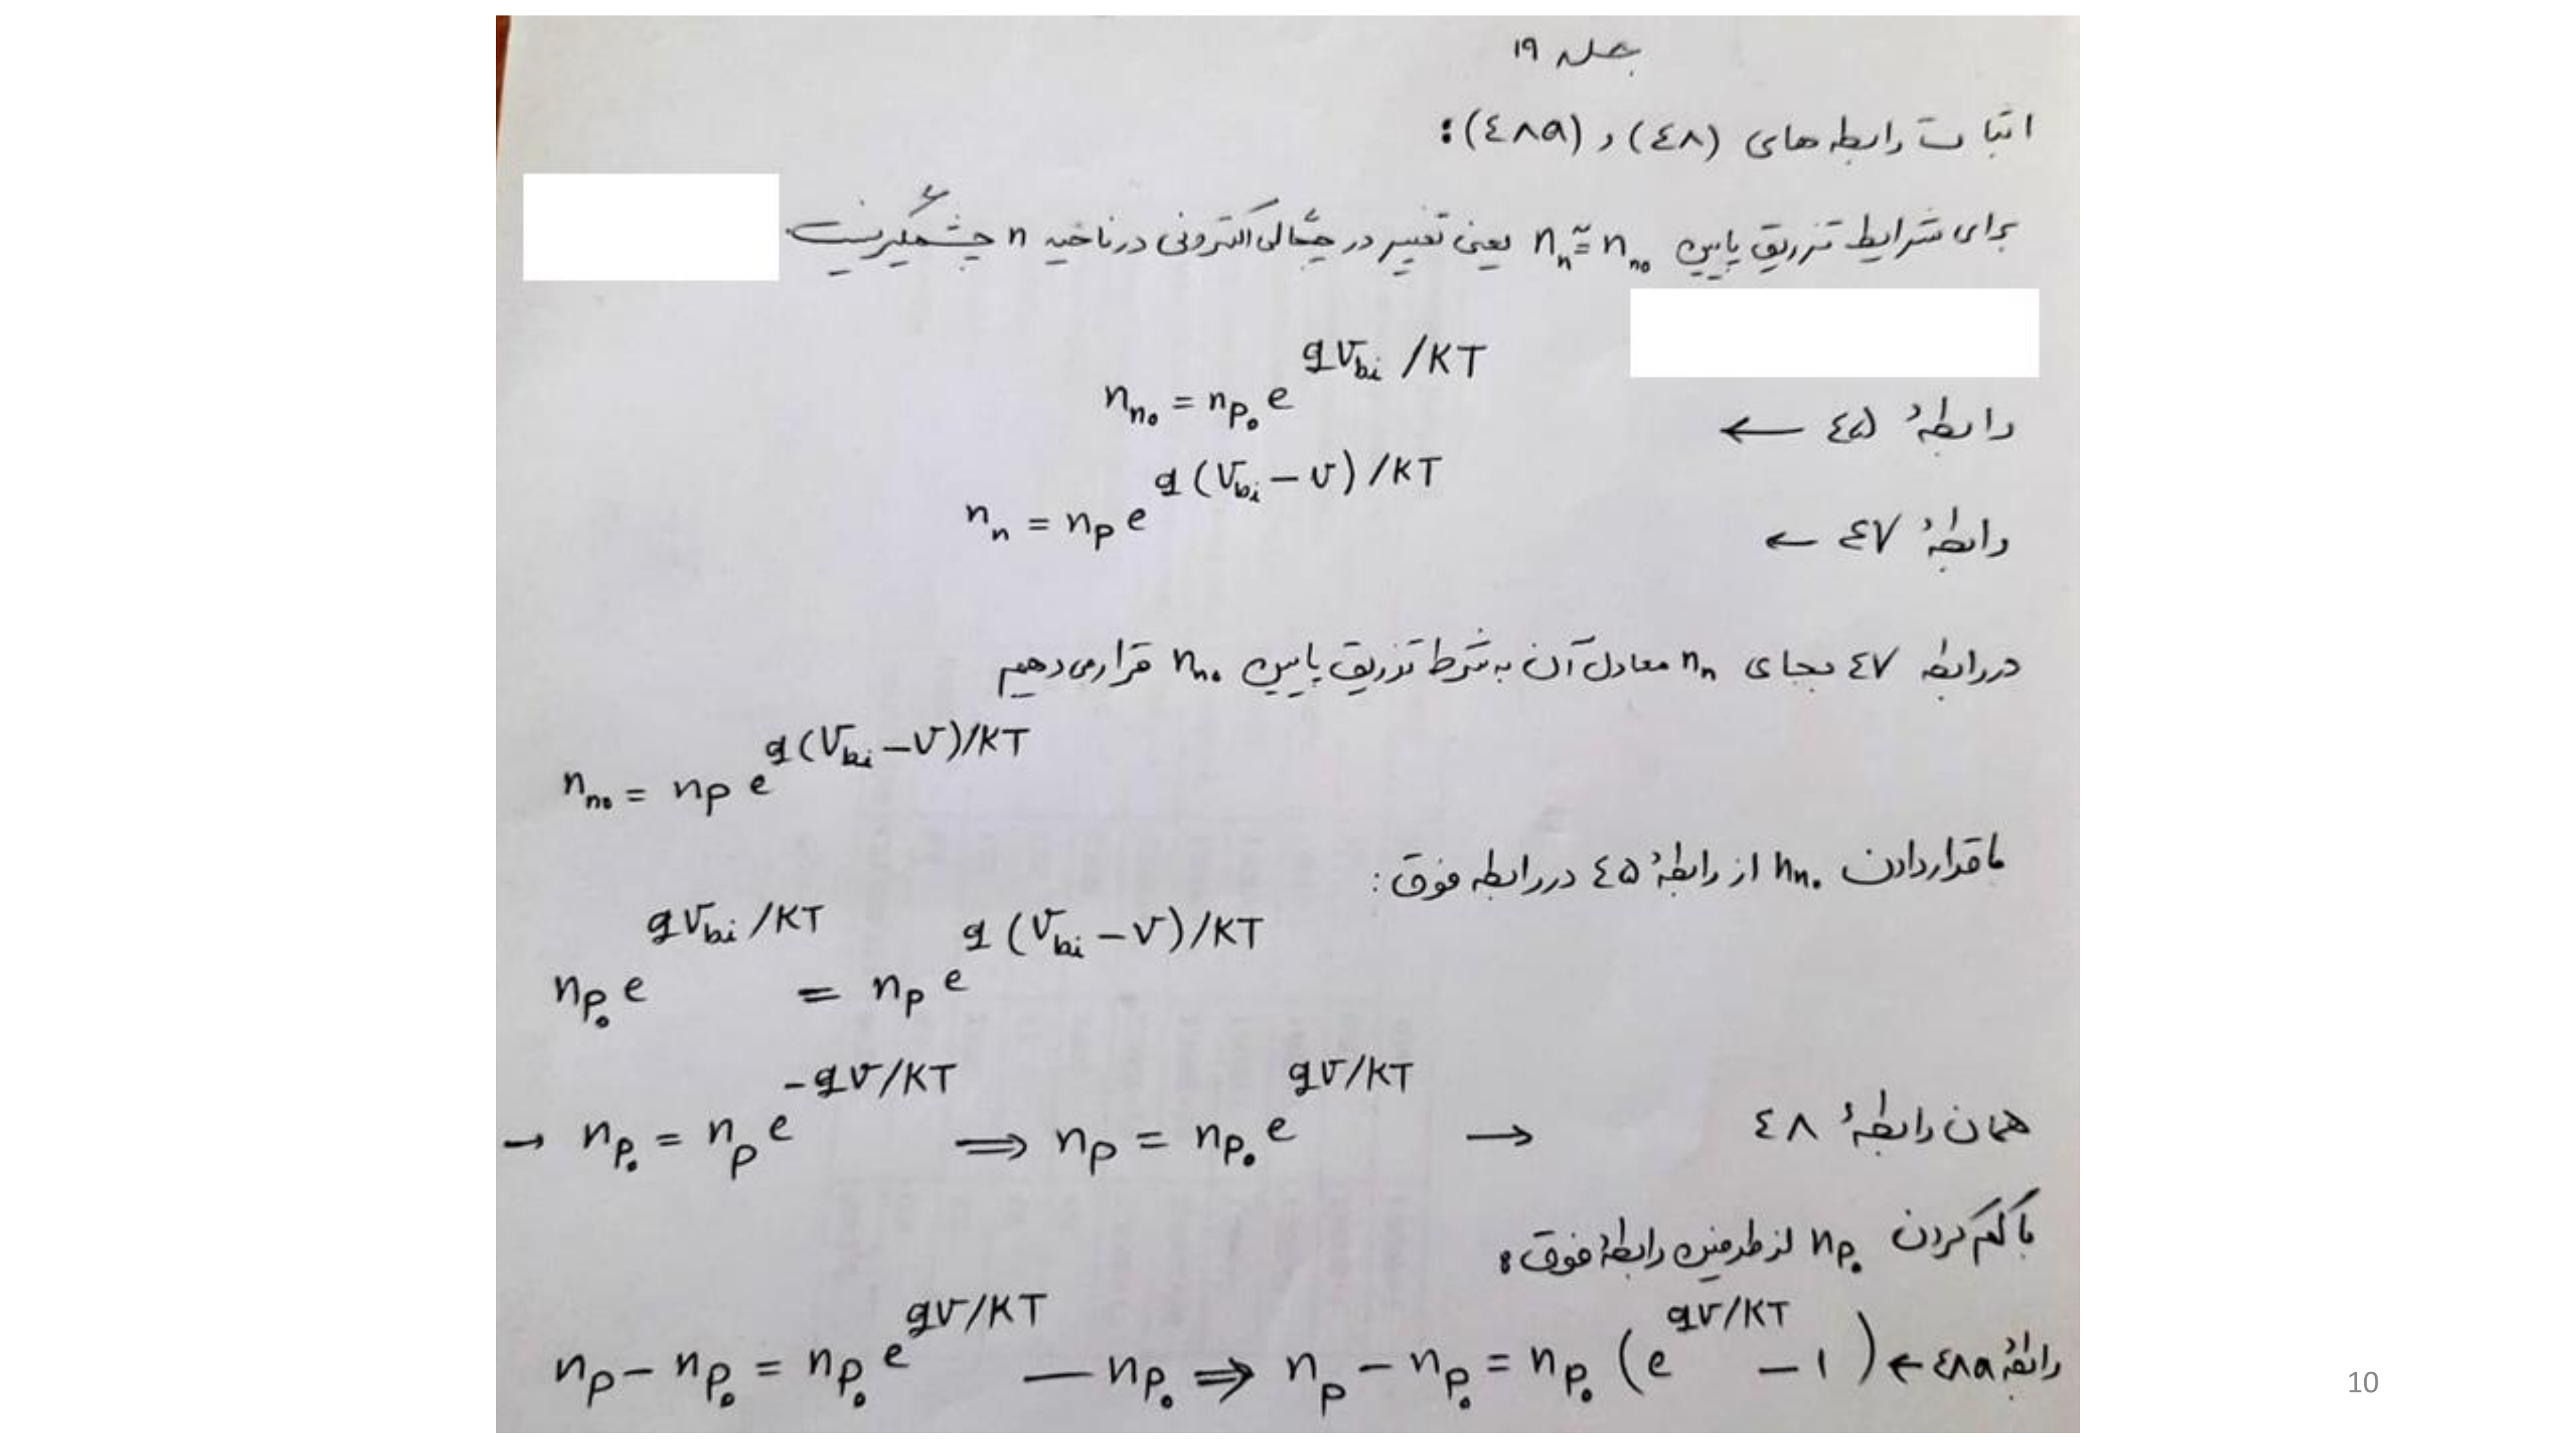 جلسه ۱۹
اثبات رابطه های (٤٨) و (٤٨a) :
برای شرایط تزریق پایین nₙ ≅ nₙ₀ یعنی تغییر در چگالی الکترونی در ناحیه n چشمگیر نیست
nₙ₀ = nₚ₀ e^{qV_{bi}/KT}
رابطهٔ ٤۵ ←
nₙ = nₚ e^{q(V_{bi} − V)/KT}
رابطهٔ ٤٧ ←
در رابطه ٤٧ بجای nₙ معادل آن به شرط تزریق پایین nₙ₀ قرار می دهیم
nₙ₀ = nₚ e^{q(V_{bi} − V)/KT}
با قرار دادن nₙ₀ از رابطهٔ ٤۵ در رابطه فوق :
nₚ₀ e^{qV_{bi}/KT} = nₚ e^{q(V_{bi} − V)/KT}
→ nₚ₀ = nₚ e^{−qV/KT} ⟹ nₚ = nₚ₀ e^{qV/KT} → همان رابطهٔ ٤٨
با کم کردن nₚ₀ از طرفین رابطهٔ فوق :
nₚ − nₚ₀ = nₚ₀ e^{qV/KT} − nₚ₀ ⟹ nₚ − nₚ₀ = nₚ₀ (e^{qV/KT} − 1) ← رابطهٔ ٤٨a
10